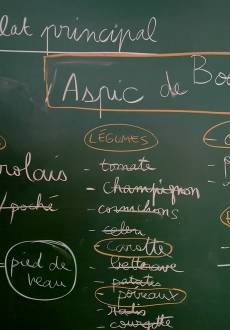 plat principal
Aspic de Bo
LÉGUMES
rolais
poché
pied de
veau
- tomate
- champignon
cornichons
- celeri
- carotte
- betterave
- patates
- poireaux
- radis
- courgette